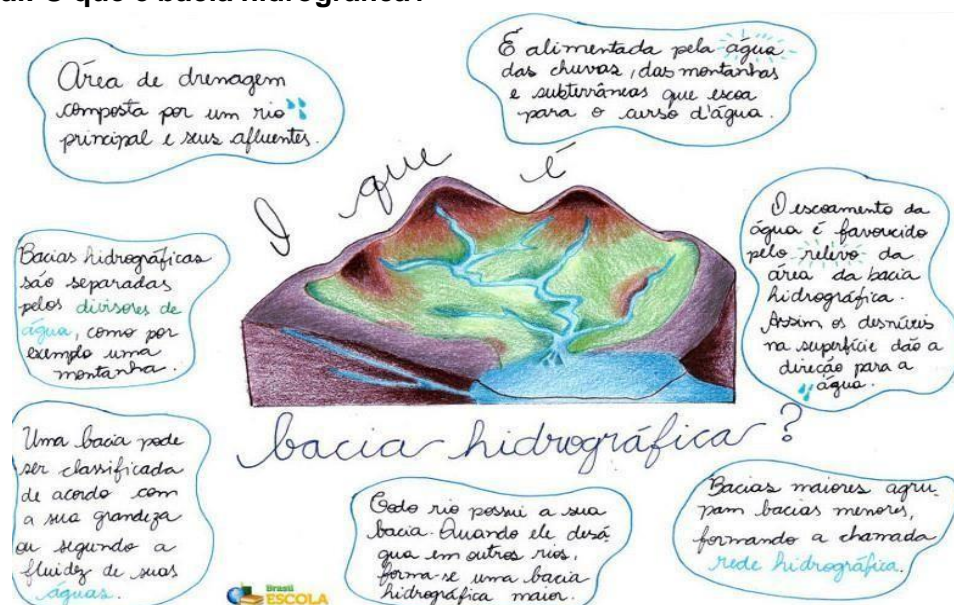 O que é bacia hidrográfica?
Área de drenagem
composta por um rio
principal e seus afluentes.
É alimentada pela água
das chuvas, das montanhas
e subterrâneas que escoa
para o curso d'água.
O que é
Bacias hidrográficas
são separadas
pelos divisores de
água, como por
exemplo uma
montanha.
O escoamento da
água é favorecido
pelo relevo da
área da bacia
hidrográfica.
Assim os desníveis
na superfície dão a
direção para a
água.
bacia hidrográfica?
Uma bacia pode
ser classificada
de acordo com
a sua grandeza
ou segundo a
fluidez de suas
águas.
Todo rio possui a sua
bacia. Quando ele desá-
gua em outros rios,
forma-se uma bacia
hidrográfica maior.
Bacias maiores agru-
pam bacias menores,
formando a chamada
rede hidrográfica.
Brasil
ESCOLA